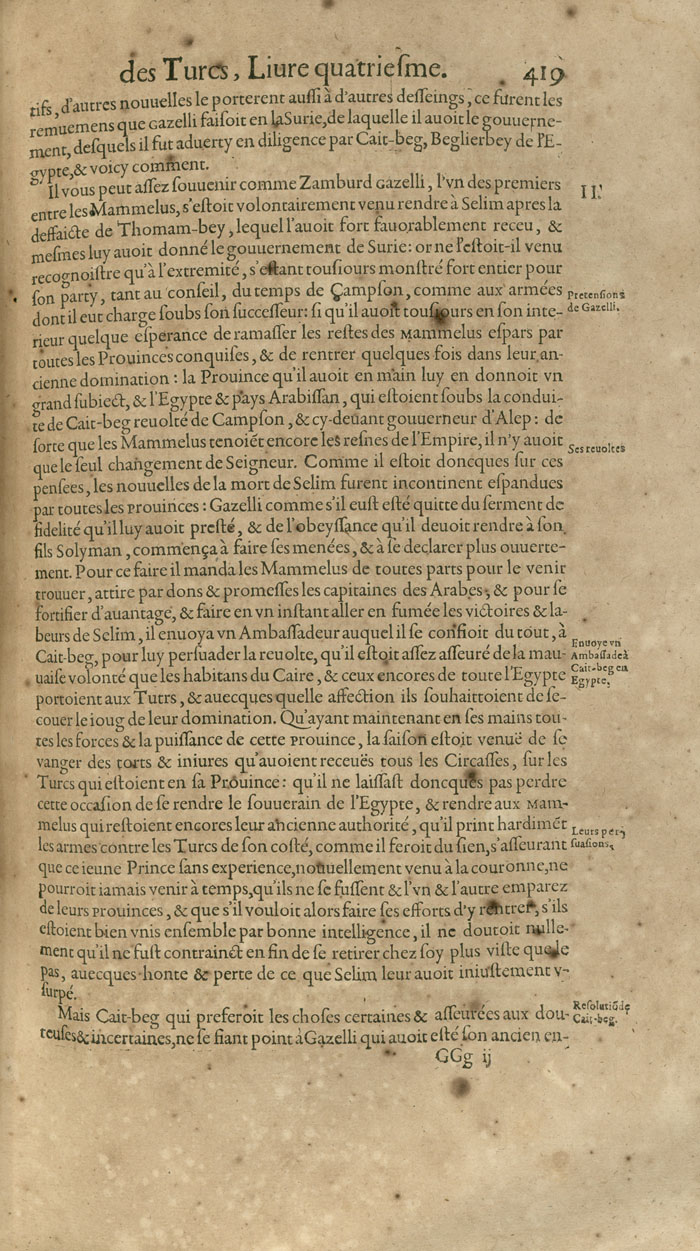 des Turcs, Liure quatriesme. 419
tifs, d'autres nouuelles le porterent aussi à d'autres desseings, ce furent les
remuemens que Gazelli faisoit en la Surie, de laquelle il auoit le gouuerne-
ment, desquels il fut aduerty en diligence par Cait-beg, Beglierbey de l'E-
gypte, & voicy comment.
Il vous peut assez souuenir comme Zamburd Gazelli, l'vn des premiers
II.
entre les Mammelus, s'estoit volontairement venu rendre à Selim apres la
deffaicte de Thomam-bey, lequel l'auoit fort fauorablement receu, &
mesmes luy auoit donné le gouuernement de Surie: or ne l'estoit-il venu
recognoistre qu'à l'extremité, s'estant tousiours monstré fort entier pour
son party, tant au conseil, du temps de Campson, comme aux armées
Pretensions
dont il eut charge soubs son successeur: si qu'il auoit tousiours en son inte-
de Gazelli.
rieur quelque esperance de ramasser les restes des Mammelus espars par
toutes les Prouinces conquises, & de rentrer quelques fois dans leur an-
cienne domination: la Prouince qu'il auoit en main luy en donnoit vn
grand subiect, & l'Egypte & pays Arabissan, qui estoient soubs la condui-
te de Cait-beg reuolté de Campson, & cy-deuant gouuerneur d'Alep: de
sorte que les Mammelus tenoiẽt encore les resnes de l'Empire, il n'y auoit
Ses reuoltes
que le seul changement de Seigneur. Comme il estoit doncques sur ces
pensees, les nouuelles de la mort de Selim furent incontinent espandues
par toutes les Prouinces: Gazelli comme s'il eust esté quitte du serment de
fidelité qu'il luy auoit presté, & de l'obeyssance qu'il deuoit rendre à son
fils Solyman, commença à faire ses menées, & à se declarer plus ouuerte-
ment. Pour ce faire il manda les Mammelus de toutes parts pour le venir
trouuer, attire par dons & promesses les capitaines des Arabes, & pour se
fortifier d'auantage, & faire en vn instant aller en fumée les victoires & la-
beurs de Selim, il enuoya vn Ambassadeur auquel il se confioit du tout, à
Enuoye vn
Cait-beg, pour luy persuader la reuolte, qu'il estoit assez asseuré de la mau-
Ambassadeˉ à
uaise volonté que les habitans du Caire, & ceux encores de toute l'Egypte
Cait-beg en
Egypte.
portoient aux Tutrs, & auecques quelle affection ils souhaittoient de se-
couer le ioug de leur domination. Qu'ayant maintenant en ses mains tou-
tes les forces & la puissance de cette Prouince, la saison estoit venuë de se
vanger des torts & iniures qu'auoient receuës tous les Circasses, sur les
Turcs qui estoient en sa Prouince: qu'il ne laissast doncques pas perdre
cette occasion de se rendre le souuerain de l'Egypte, & rendre aux Mam-
melus qui restoient encores leur ancienne authorité, qu'il print hardimẽt
Leurs per-
les armes contre les Turcs de son costé, comme il feroit du sien, s'asseurant
suasions.
que ce ieune Prince sans experience, nouuellement venu à la couronne, ne
pourroit iamais venir à temps, qu'ils ne se fussent & l'vn & l'autre emparez
de leurs prouinces, & que s'il vouloit alors faire ses efforts d'y rentrer, s'ils
estoient bien vnis ensemble par bonne intelligence, il ne doutoit nulle-
ment qu'il ne fust contrainct en fin de se retirer chez soy plus viste que le
pas, auecques honte & perte de ce que Selim leur auoit iniustement v-
surpé.
Mais Cait-beg qui preferoit les choses certaines & asseurées aux dou-
Resolutiõ de
Cait-beg.
teuses & incertaines, ne se fiant point à Gazelli qui auoit esté son ancien en-
GGg ij